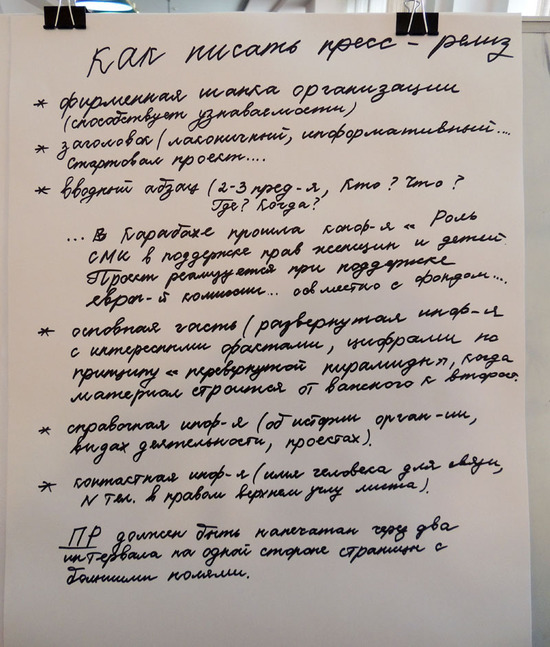 Как писать пресс-релиз
* фирменная шапка организации
(способствует узнаваемости)
* заголовок (лаконичный, информативный....
Стартовал проект....
* вводный абзац (2-3 пред-я, Кто? Что?
Где? Когда?
... В Карабахе прошла конф-я « Роль
СМК в поддержке прав женщин и детей.
Проект реализуется при поддержке
европ-й комиссии... совместно с фондом....
* основная часть (развернутая инф-я
с интересными фактами, цифрами по
принципу « перевернутой пирамиды», когда
материал строится от важного к второст.
* справочная инф-я (об истории орган-ии,
видах деятельности, проектах).
* контактная инф-я (имя человека для связи,
N тел. в правом верхнем углу листа).
ПР должен быть напечатан через два
интервала на одной стороне страницы с
большими полями.